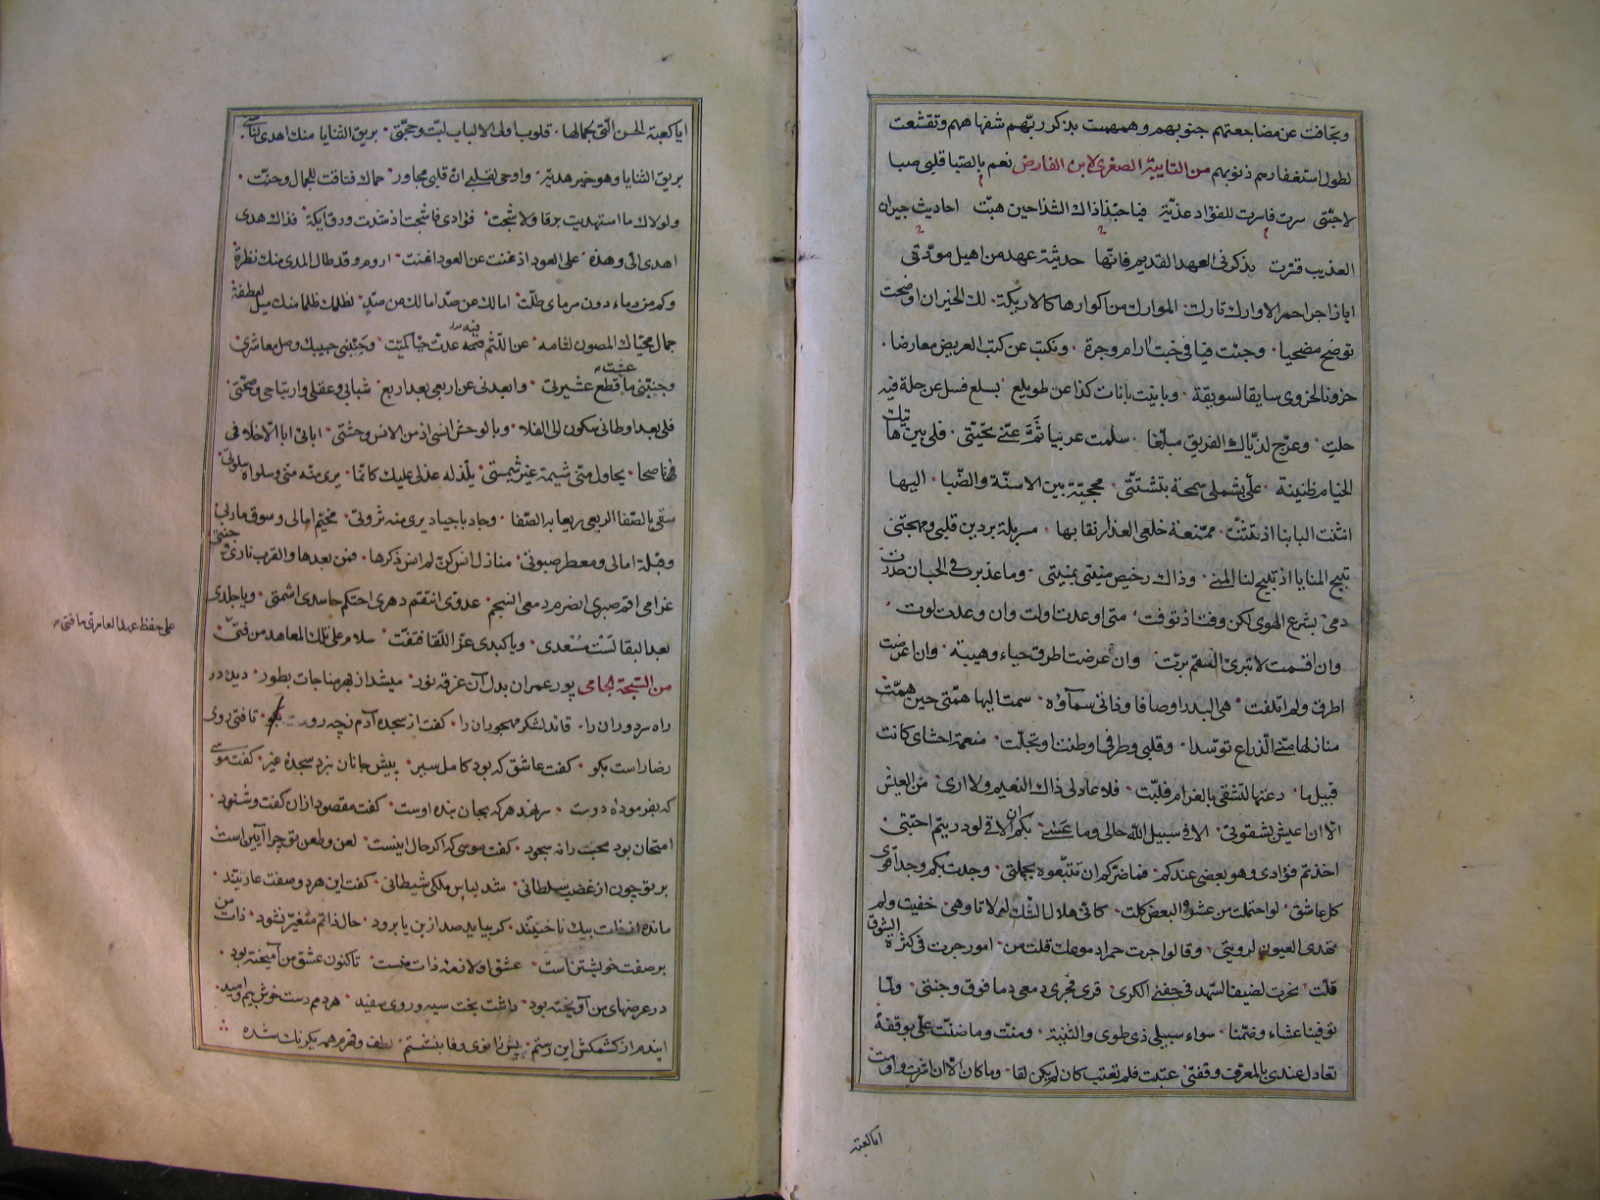 وتجافت عن مضاجعتهم جنوبهم وهمهمت بذكر ربّهم شفاههم وتقشعت
لطول استغفارهم ذنوبهم من التاييّة الصغرى لابن الفارض نعم بالصّبا قلبي صبا
لاحبّتي سرت فاسرت للفؤاد غديّة فيا حبّذا ذاك الشذا حين هبّت احاديث جيران
العذيب فسرّت يذكرني العهد القديم فانّها حديثة عهد من اهيل مودّتي
ايا زاجرا حمر الاوارك تارك الموارك من اكوارها كالاريكة لك الخير ان اوضحت
توضح مضحيا وجبت فيا في خبت ارام وجرة ونكبت عن كثب العريض معارضا
حزونا لحزوى سايقا لسويقة وباينت بانات كذا عن طويلع بسلع فسل عن حلة فيه
حلت وعرّج لذيّاك الفريق مبلّغا سلمت عريبا ثَمَّ عنّي تحيّتي فلي بين هاتيك
الخيام ظنينة علىّ بشملي سمحة بتشتّتي محجبّة بين الاسنّة والظّبا اليها
انثنت البابنا اذ تثنّت ممنّعة خلعى العذار نقابها مسربلة بردين قلبي ومهجتي
تبيح المنايا اذ تبيح لنا المنى وذاك رخيص منيتي بمنيتي وما غدرت في الحب ان هدرت
دمى بشرع الهوى لكن وفت اذ توفت متى اوعدت اولت وان وعدت لوت
وان اقسمت لا تبرئ السقم برّت وان عرضت اطرق حياء وهيبة وان اعرضت
اطرق ولم اتلفت هي البدر اوصافا وذاتي سماؤه سمت اليها همّتي حين همّت
منازلها منّي الذراع توسّدا وقلبي وطرفي اوطنت او تجلّت منعمة احشاى كانت
قبيل ما دعتها لتشقى بالغرام فلبّت فلا عادلى ذاك النعيم ولا ارى من العيش
الّا ان اعيش بشقوتي الا في سبيل الله حالي وما عَسَى بكم ان الاقي لو دريتم احبّتي
اخذتم فؤادى وهو بعضي عندكم فما ضرّكم ان تتبعوه بجملتي وجدت بكم وجدا قوى
كل عاشق لو احتملت من عبئه البعض كلت كانّي هلال الشك لولا تاوهي خفيت ولم
تهدى العيون لرويتي وقالوا جرت حمرا دموعك قلت من امور جرت في كثرة الشوق
قلّت نحرت لضيف السّهد في جفني الكرى قرى فجرى دمعى دما فوق وجنتي ولمّا
توفينا عشاء وضمنا سواء سبيلي ذي طوى والثنيّة ومنّت وما ضنّت علىّ بوقفة
تعادل عندى بالمعرّف وقفتي عتبت فلم تعتب كان لم يكن لقا وما كان الّا ان اشرت واومت
ايا كعبة
ايا كعبة الحسن الّتي لجمالها قلوب اولى الالباب لبّت وحجّتي بريق الثنايا منك اهدى لنا سنى
بريق الثنايا وهو خير هديّة واوحى لقلبي انّ قلبي مجاور حماك فتاقت للجمال وحنّت
ولولاك ما استهديت برقا ولا شجت فؤادى فاشجت اذ شدت ورق ايكة فذاك هدى
اهدى الىّ وهذه على العود اذ غنت عن العود اغنت اروم وقد طال المدى منك نظرة
وكم من دماء دون مرماى طلّت امالك عن صدّ امالك عن صدٍ لظلمك ظلما منك ميل لعطفة
جمال محيّاك المصون لثامه عن اللّثم فيه عدت حيّا كميّت وجنّبني حبيك وصل معاشرى
وحبّبني ما عشت قطع عشيرتي وابعدني عن اربعي بعد اربع شبابي وعقلي وارتياحي وصحّتي
فلى بعد اوطاني سكون الى الفلا وبالوحش انسى اذ من الانس وحشتي
ناصحا يحاول منّي شيمة غير شيمتي يلذّ له عذلى عليك كانّما يرى منّه منّي وسلواه سلوتي
سقى بالصّفا الربعي ربعا به الصّفا وجاد باجياد ثرى منه ثروتي مخيّم امالى وسوق ماربي
وقبلة امالى ومعطر صبوتي منازل انس كنّ لم انس ذكرها فمن بعدها والقرب نارى وجنّتي
غرامى اقم صبرى انصرم دمعى انسجم عدوّى انتقم دهرى احتكم حاسدى اشمتي ويا جلدى
بعد البقا لَسْتَ مُسْعِدى ويا كبدى عزّ اللقا فتفتّتي سلام على تلك المعاهد من فتى
على حفظ عهد العامرتي ما فتى
من السّبحة الجامى پور عمران بدل آن غرقه نور ميشد از بهر مناجات بطور ديد در
راه سر دوران را قائد لشكر مهجوران را كفت از سجده آدم ز چه رو تافتى روى
رضا راست بكو كفت عاشق كه بود كامل سير پيش جانان نبرد سجده غير كفت موسى
كه بفرموده دوست سر نهد هر كه بجان بنده اوست كفت مقصود ازان كفت وشنود
امتحان بود محب را نه سجود كفت موسى كه اكر حال اينست لعن وطعن تو چرا آيين است
بر تو چون از غضب سلطانى شد لباس ملكى شيطانى كفت اين هر دو صفت عاريتند
مانده از ذات بيك ناحيتند كر بيايد صد ازين يا برود حال ذاتم متغيّر نشود ذات من
بر صفت خويشتن است عشق او لازمه ذات منست تا كنون عشق من آميخته بود
در عرضهاى من آويخته بود داشت بخت سيه وروى سفيد هر دم دست خوش بيم واميد
ايندم از كشمكش اين رستم پس زانوى وفا بنشستم لطف وقهرم همه يكرنك شده